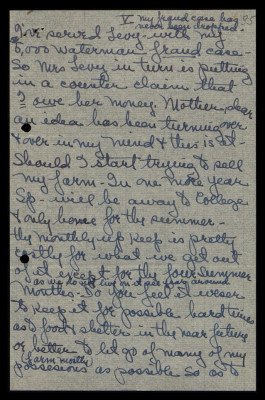 V my fraud case has 95
never been dropped.
I've served Levy with my
5,000 waterman fraud case
So Mrs Levy in turn is putting
in a counter claim that
I owe her money. Mother dear
an idea has been turning over
& over in my mind & this is it -
Should I start trying to sell
my farm - In one more year
Sp - will be away to College
& only home for the summer -
the monthly up keep is pretty
costly for what we get out
of it except for the four summer
as we do not live in it all year around
months - Do you feel it wiser
to keep it for possible hard times
as to food & shelter in the near future
or better to let go of many of my
(farm mostly)
possesions as possible so as to